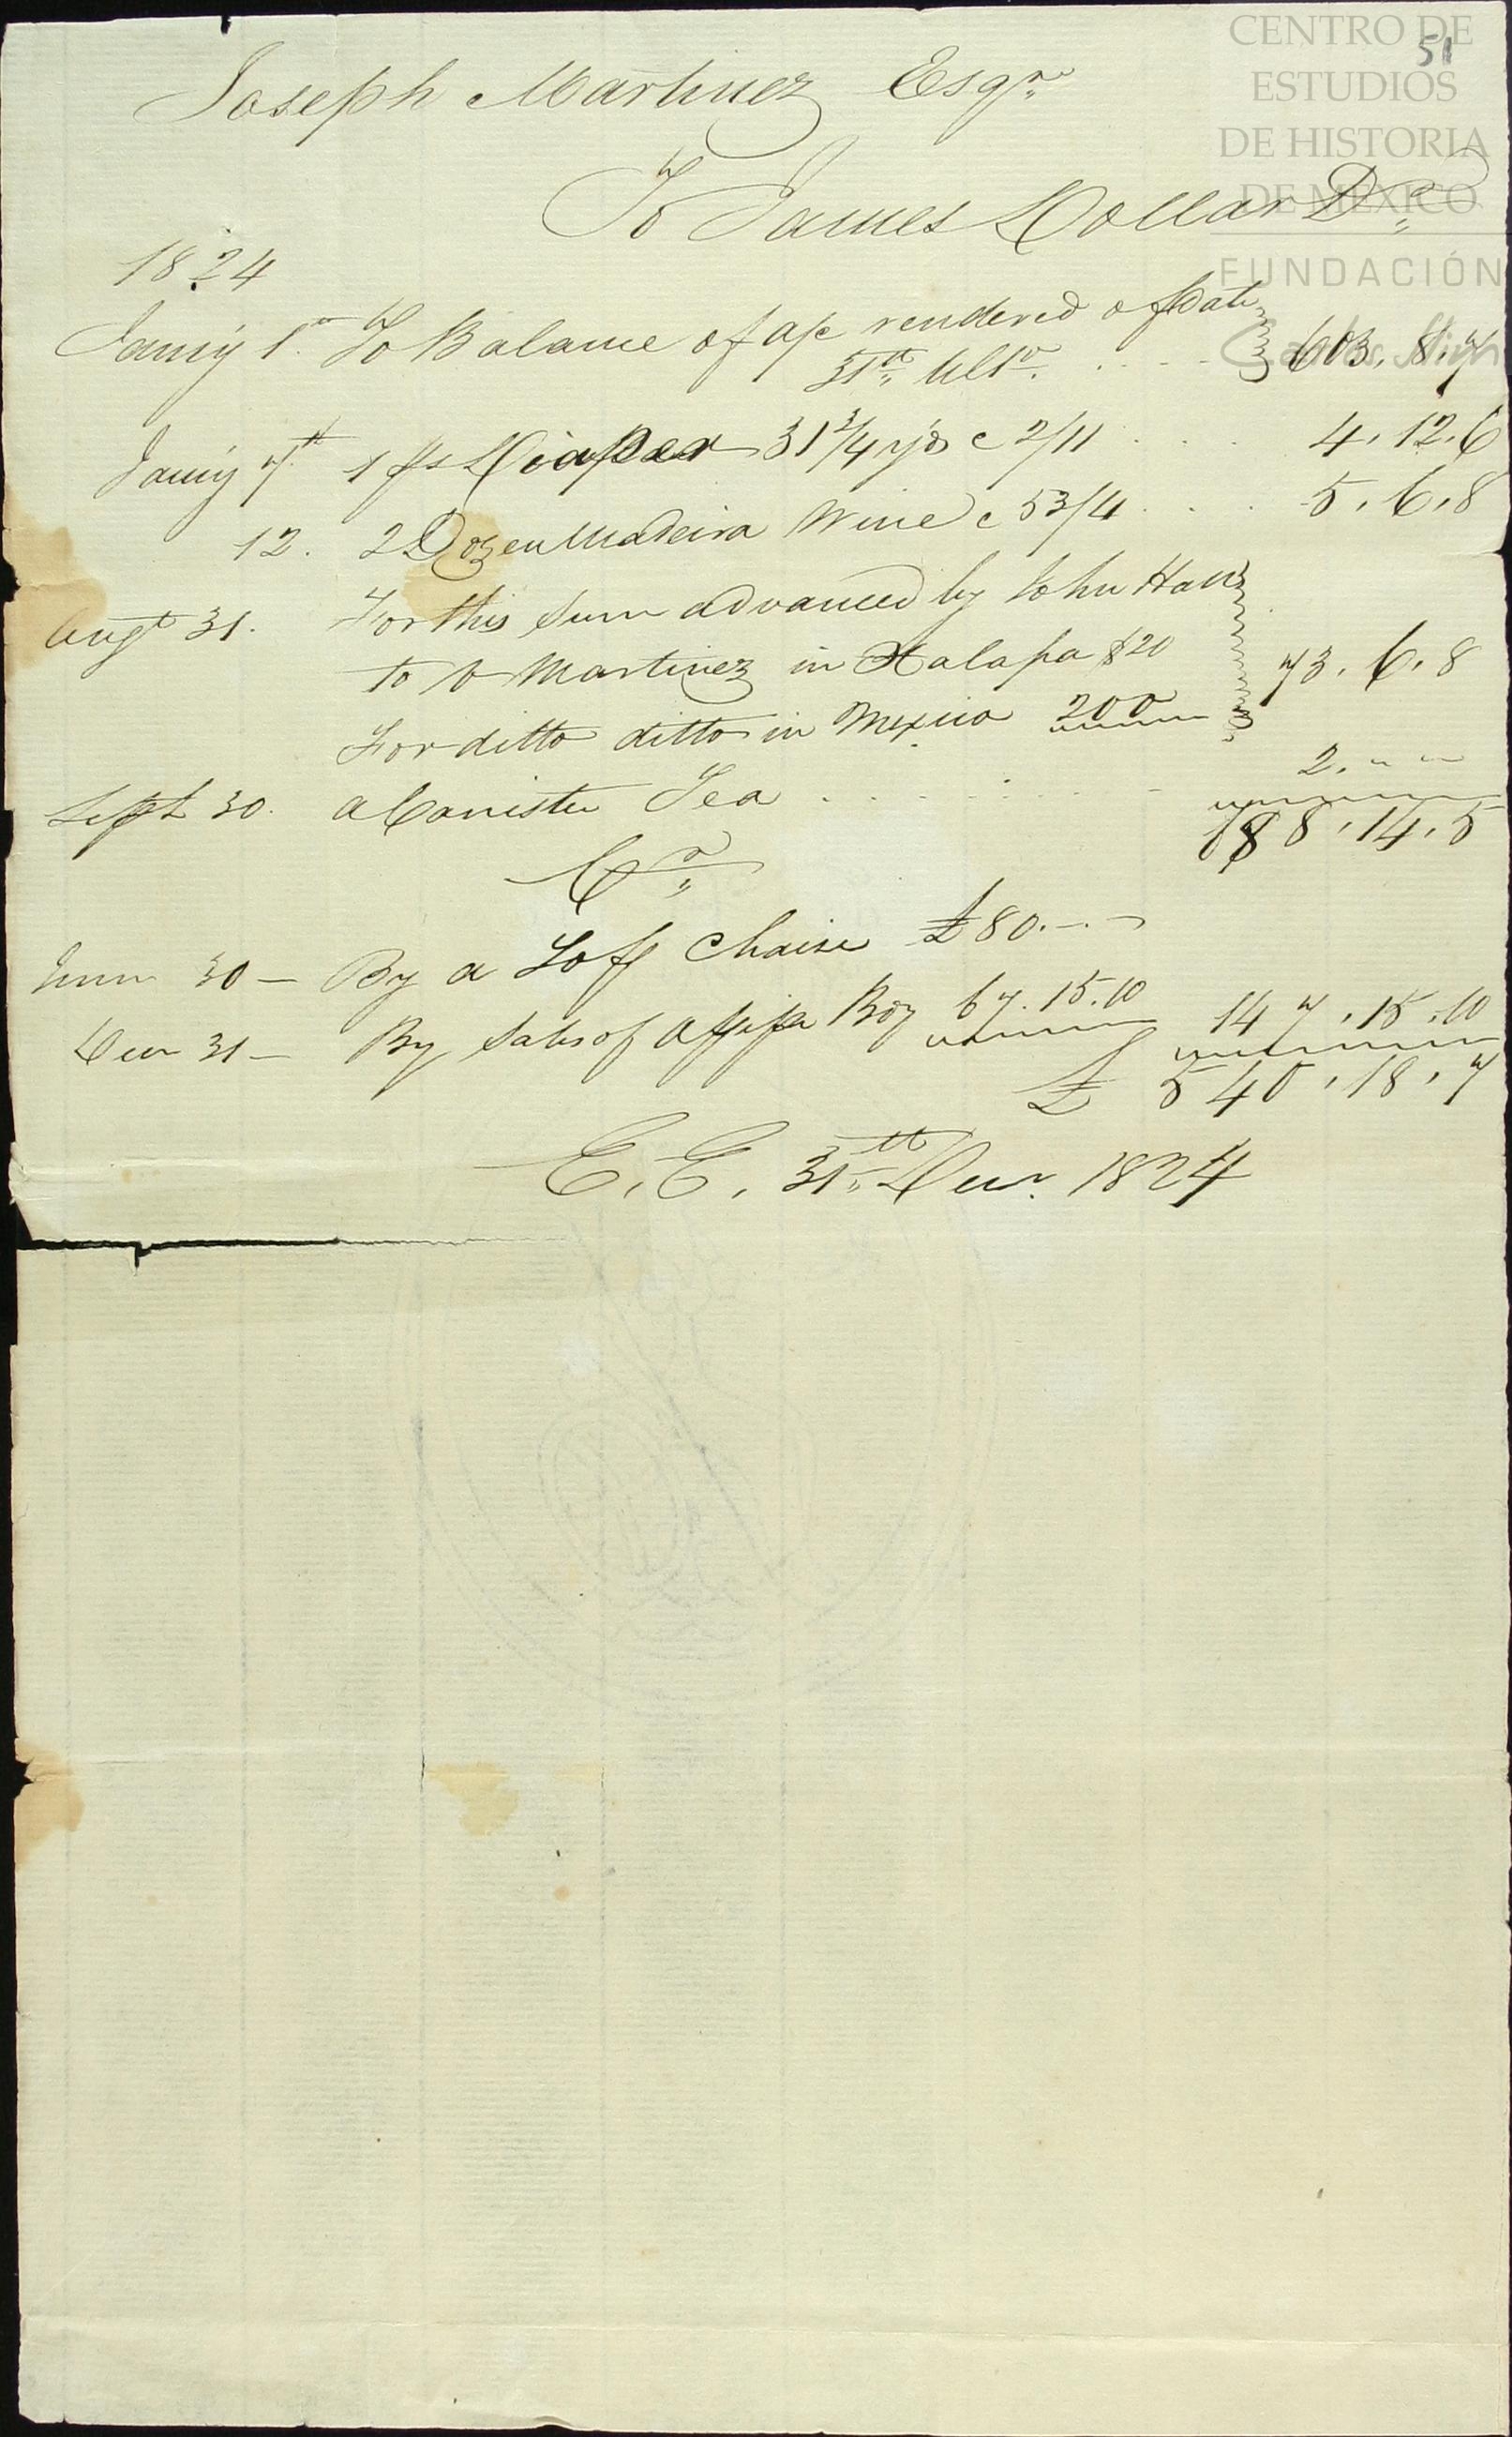 CENTRO DE
ESTUDIOS
DE HISTORIA
DE MÉXICO
FUNDACIÓN
51
Joseph Martinez Esqr.
To James Dollar Dr.
1824
Jany 1st To Balance of a/c rendered of date
31th Ulto. . . . . 603. 8. 7
Jany 7th 1 ps Diaper 31 3/4 yds @ 2/11 . . . 4. 12. 6
12. 2 Dozen Madeira Wine @ 53/4 . . . 5. 6. 8
Augt 31. For this Sum advanced by John Hall
to Martinez in Xalapa $20
73. 6. 8
For ditto ditto in Mexico 200
Sept 30. a Canister Tea . . . . . . . 2. " "
688. 14. 5
Cr.
June 30 — By a Chaise £80. - . -
Decr 31 — By Sales of 67. 15. 10 147. 15. 10
£ 540. 18. 7
E. E. 31th Decr. 1824